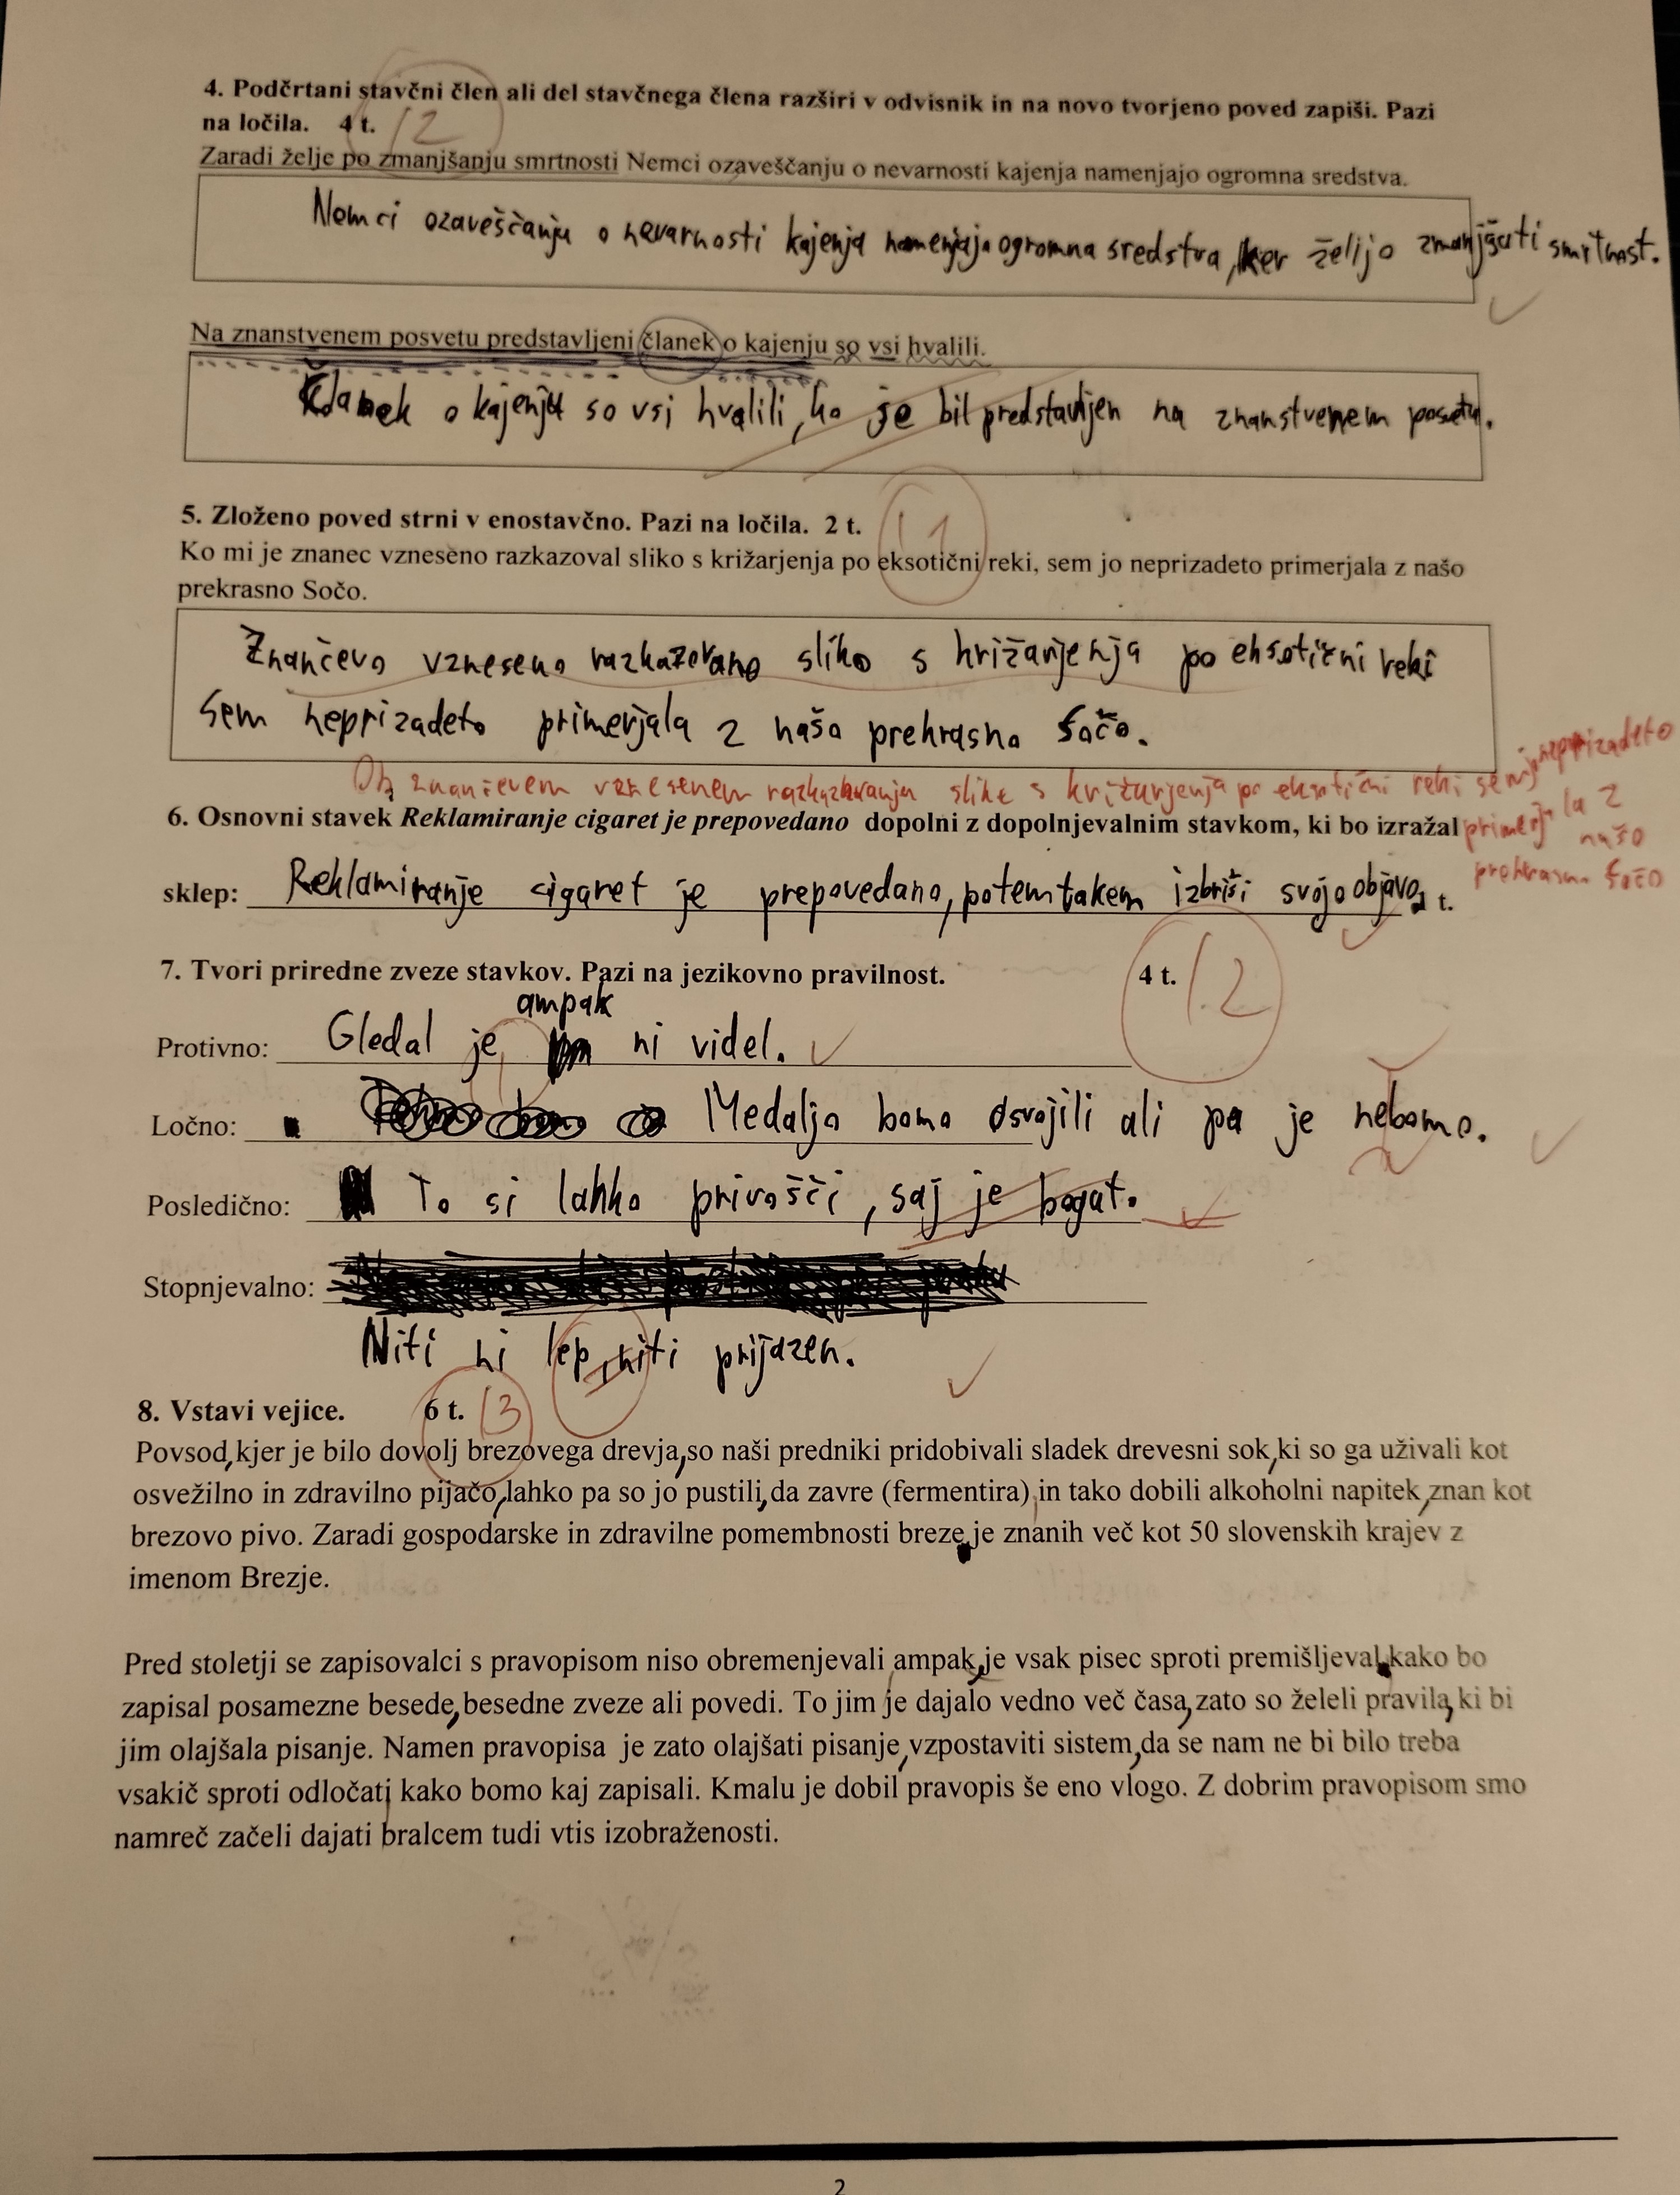 4. Podčrtani stavčni člen ali del stavčnega člena razširi v odvisnik in na novo tvorjeno poved zapiši. Pazi
na ločila. 4 t. /2
Zaradi želje po zmanjšanju smrtnosti Nemci ozaveščanju o nevarnosti kajenja namenjajo ogromna sredstva.
Nemci ozaveščanju o nevarnosti kajenja namenjajo ogromna sredstva, ker želijo zmanjšati smrtnost.
Na znanstvenem posvetu predstavljeni članek o kajenju so vsi hvalili.
Članek o kajenju so vsi hvalili, ko je bil predstavljen na znanstvenem posvetu.
5. Zloženo poved strni v enostavčno. Pazi na ločila. 2 t. /1
Ko mi je znanec vzneseno razkazoval sliko s križarjenja po eksotični reki, sem jo neprizadeto primerjala z našo
prekrasno Sočo.
Znančevo vzneseno razkazovano sliko s križarjenja po eksotični reki
sem neprizadeto primerjala z našo prekrasno Sočo.
Ob znančevem vznesenem razkazovanju slike s križarjenja po eksotični reki sem jo neprizadeto
primerjala z
našo
prekrasno Sočo
6. Osnovni stavek Reklamiranje cigaret je prepovedano dopolni z dopolnjevalnim stavkom, ki bo izražal
sklep: Reklamiranje cigaret je prepovedano, potemtakem izbriši svojo objavo. t.
7. Tvori priredne zveze stavkov. Pazi na jezikovno pravilnost. 4 t. /2
ampak
Protivno: Gledal je, ni videl.
Ločno: Medaljo bomo osvojili ali pa je nebomo.
Posledično: To si lahko privošči, saj je bogat.
Stopnjevalno:
Niti ni lep, niti prijazen.
8. Vstavi vejice. 6 t. /3
Povsod, kjer je bilo dovolj brezovega drevja, so naši predniki pridobivali sladek drevesni sok, ki so ga uživali kot
osvežilno in zdravilno pijačo, lahko pa so jo pustili, da zavre (fermentira) in tako dobili alkoholni napitek, znan kot
brezovo pivo. Zaradi gospodarske in zdravilne pomembnosti breze je znanih več kot 50 slovenskih krajev z
imenom Brezje.
Pred stoletji se zapisovalci s pravopisom niso obremenjevali ampak, je vsak pisec sproti premišljeval kako bo
zapisal posamezne besede, besedne zveze ali povedi. To jim je dajalo vedno več časa, zato so želeli pravila, ki bi
jim olajšala pisanje. Namen pravopisa je zato olajšati pisanje, vzpostaviti sistem, da se nam ne bi bilo treba
vsakič sproti odločati kako bomo kaj zapisali. Kmalu je dobil pravopis še eno vlogo. Z dobrim pravopisom smo
namreč začeli dajati bralcem tudi vtis izobraženosti.
2